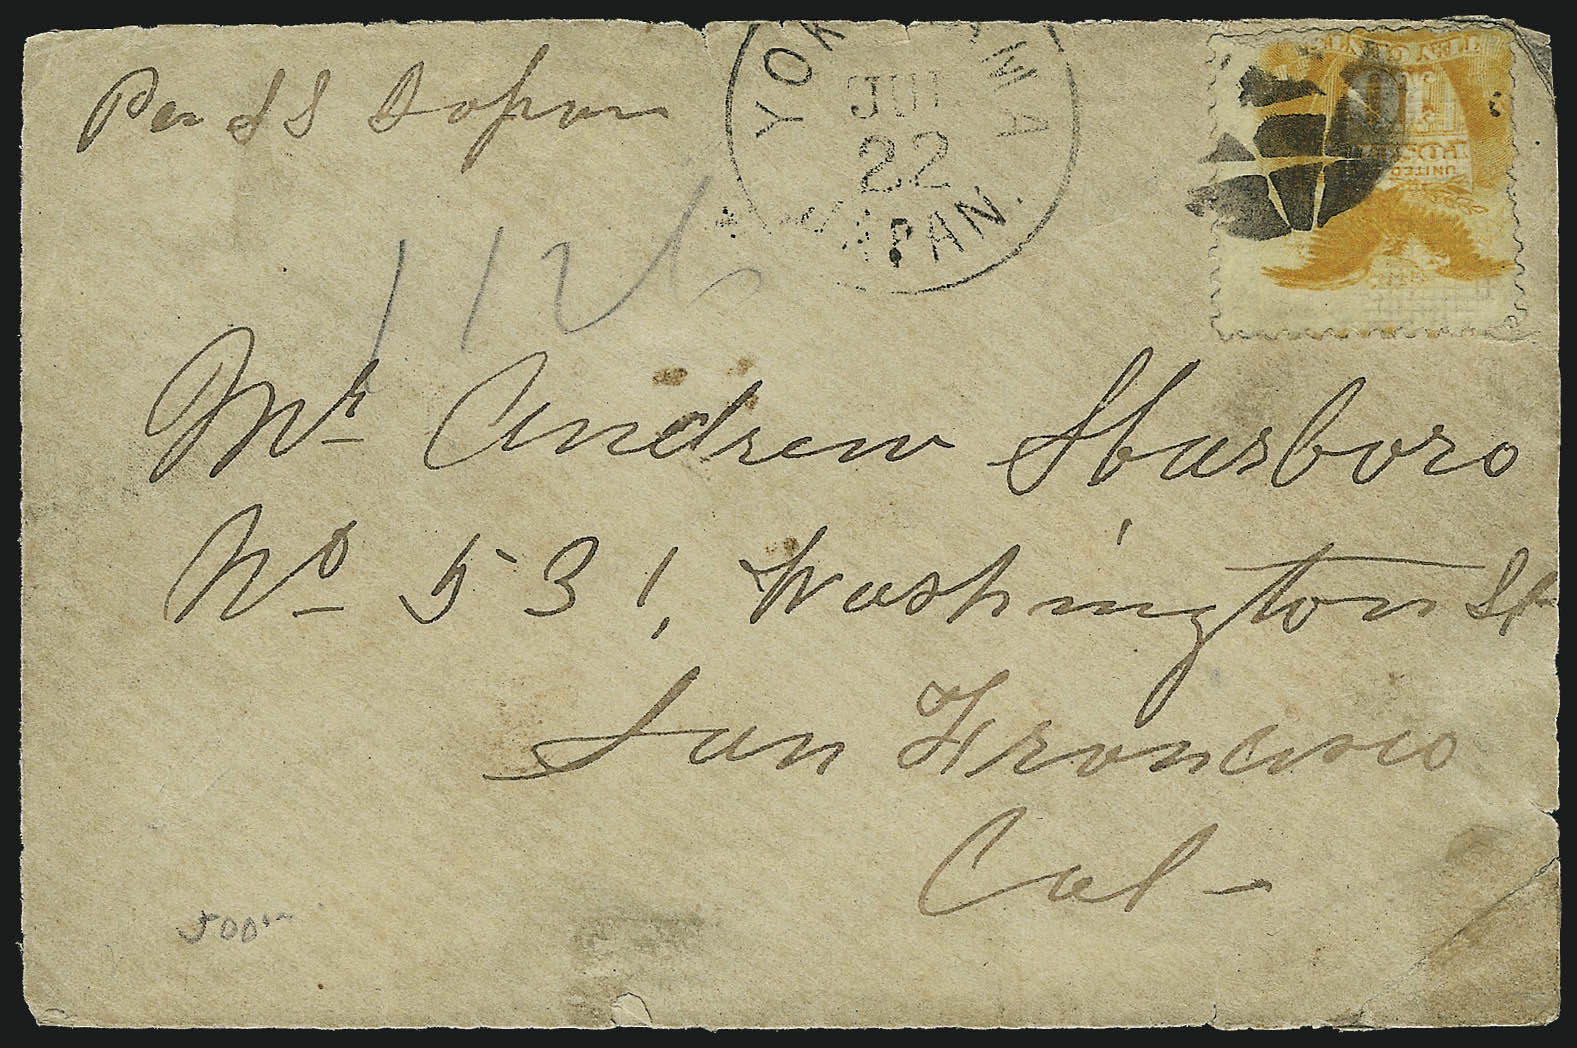 Per SS Japan
YOKOHAMA
JUL
22
JAPAN.
TEN CENTS
10
POSTAGE
UNITED
112
Mr Andrew Harboro
No 531, Washington St
San Francisco
Cal -
500